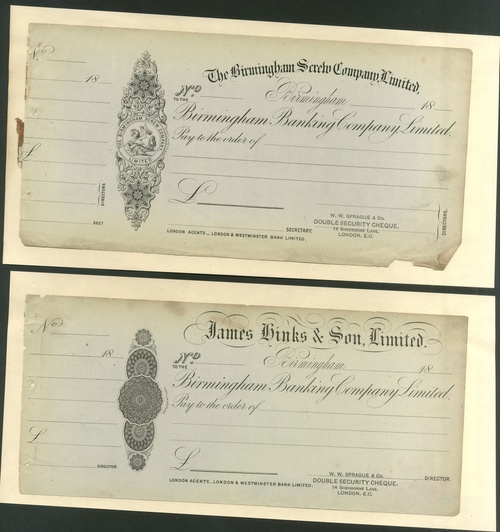 No
18
£
DIRECTORS.
SECY
THE BIRMINGHAM SCREW COMPANY
LIMITED
The Birmingham Screw Company, Limited.
No
Birmingham 18
TO THE
Birmingham Banking Company Limited.
Pay to the order of
£
SECRETARY.
DIRECTORS.
LONDON AGENTS_ LONDON & WESTMINSTER BANK LIMITED.
W. W. SPRAGUE & Co.
DOUBLE SECURITY CHEQUE.
14 SHERBORNE LANE,
LONDON, E.C.
No
18
£
DIRECTOR
James Hinks & Son, Limited.
No
Birmingham 18
TO THE
Birmingham Banking Company Limited.
Pay to the order of
£
DIRECTOR.
LONDON AGENTS_ LONDON & WESTMINSTER BANK LIMITED.
W. W. SPRAGUE & Co.
DOUBLE SECURITY CHEQUE.
14 SHERBORNE LANE,
LONDON, E.C.